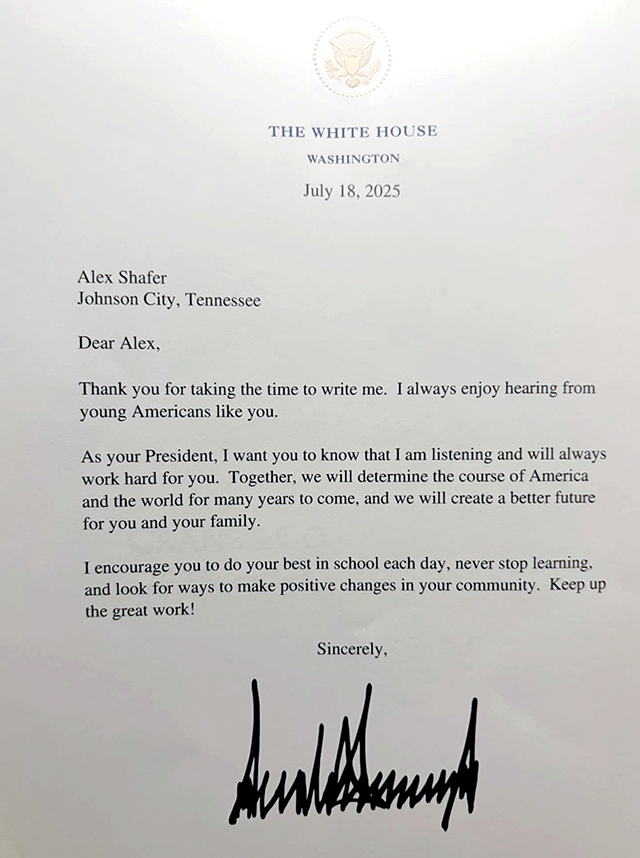 THE WHITE HOUSE
WASHINGTON
July 18, 2025
Alex Shafer
Johnson City, Tennessee
Dear Alex,
Thank you for taking the time to write me.  I always enjoy hearing from
young Americans like you.
As your President, I want you to know that I am listening and will always
work hard for you.  Together, we will determine the course of America
and the world for many years to come, and we will create a better future
for you and your family.
I encourage you to do your best in school each day, never stop learning,
and look for ways to make positive changes in your community.  Keep up
the great work!
Sincerely,